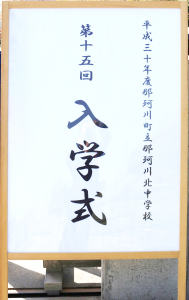 平成三十年度那珂川町立那珂川北中学校
第十五回
入学式